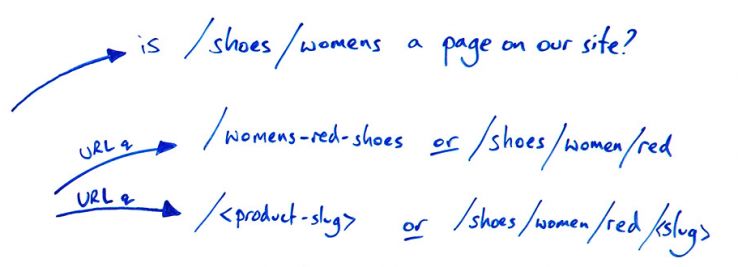 is /shoes/womens a page on our site?
URL q /womens-red-shoes or /shoes/women/red
URL q /<product-slug> or /shoes/women/red/<slug>